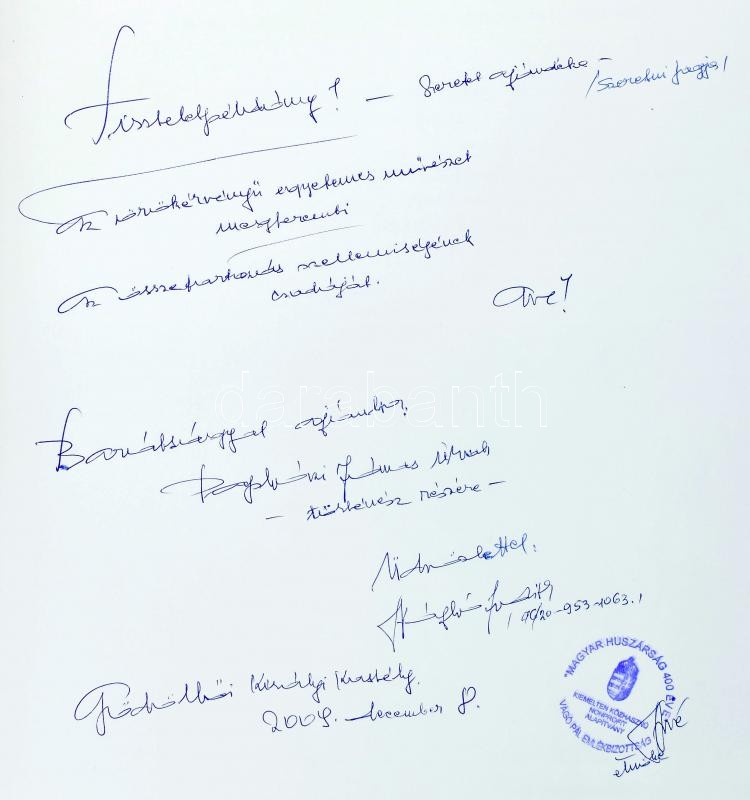 Tiszteletpéldány! — Szeretet ajándéka —
/Szeretni fogja/
Az örökérvényű egyetemes művészet
megteremti
Az összetartozás szellemiségének
csodáját.
Ave!
darabanth
Barátsággal ajándék:
János Úrnak
— történész részére —
Üdvözlettel:
Judith
/ 06/20-953-1063. /
Gödöllői Királyi Kastély.
2009. december 8.
"MAGYAR HUSZÁRSÁG 400 ÉVE"
KIEMELTEN KÖZHASZNÚ
NONPROFIT
ALAPÍTVÁNY
VÁGÓ PÁL EMLÉKBIZOTTSÁG
elnöke